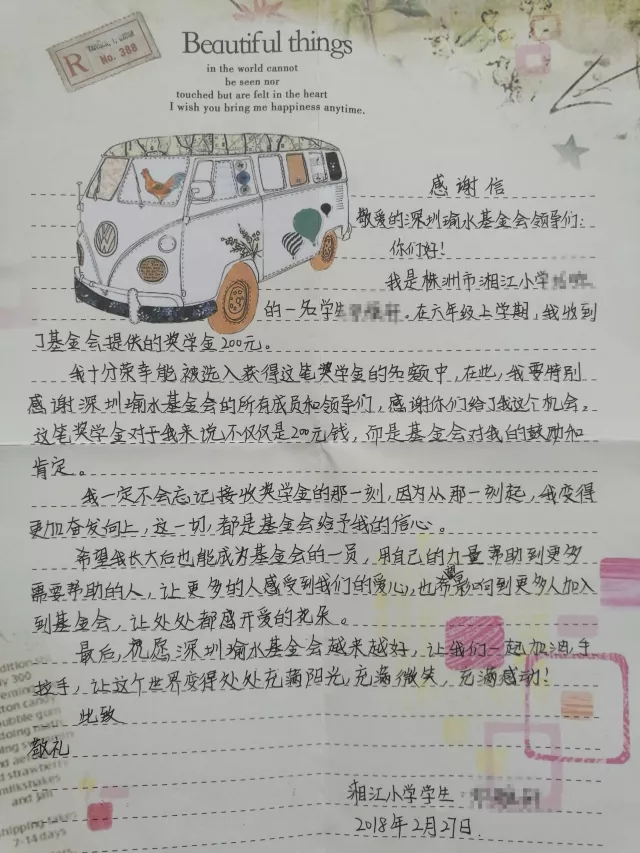 R
No. 388
Beautiful things
in the world cannot
be seen nor
touched but are felt in the heart
I wish you bring me happiness anytime.
感谢信
敬爱的深圳瑜水基金会领导们:
你们好!
我是株洲市湘江小学
的一名学生 。在六年级上学期,我收到
了基金会提供的奖学金200元。
我十分荣幸能被选入获得这笔奖学金的名额中,在此,我要特别
感谢深圳瑜水基金会的所有成员和领导们,感谢你们给了我这个机会。
这笔奖学金对于我来说不仅仅是200元钱,而是基金会对我的鼓励和
肯定。
我一定不会忘记接收奖学金的那一刻,因为从那一刻起,我变得
更加奋发向上,这一切,都是基金会给予我的信心。
希望我长大后也能成为基金会的一员,用自己的力量帮助到更多
需要帮助的人,让更多的人感受到我们的爱心,也希影响到更多人加入
到基金会,让处处都盛开爱的花朵。
最后,祝愿深圳瑜水基金会越来越好,让我们一起加油,手
拉手,让这个世界变得处处充满阳光,充满微笑,充满感动!
此致
敬礼
湘江小学学生:
2018年2月27日.
y 300
cotton candy
bubble gum
and strawberry
milkshakes
and jam
shipping takes
7-14 days